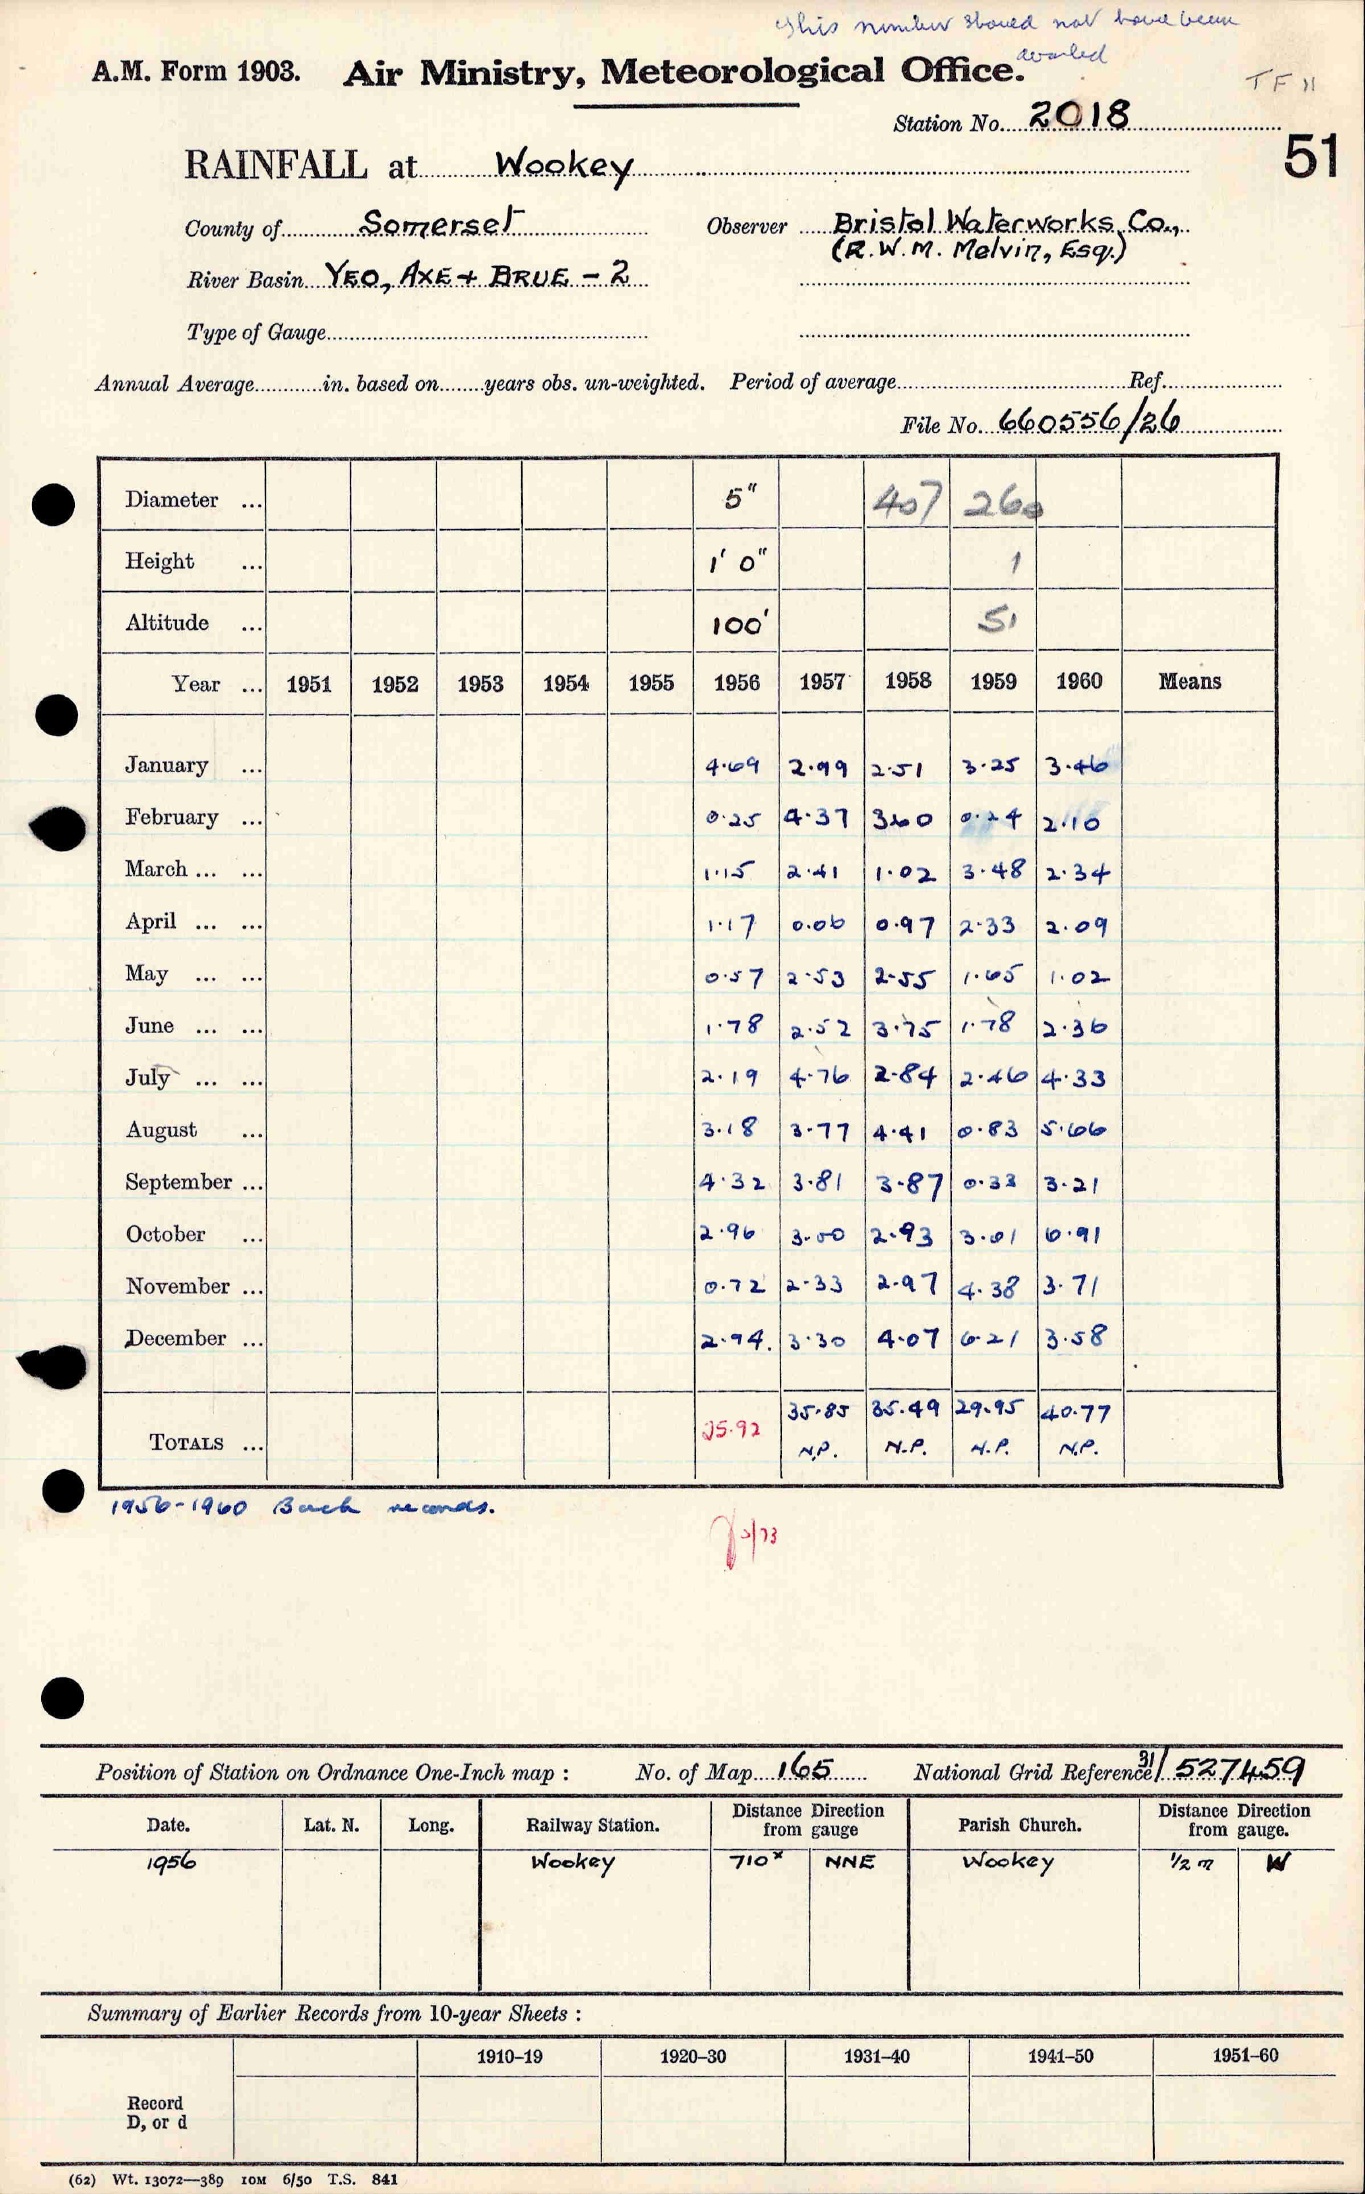 This number should not have been
A.M. Form 1903. Air Ministry, Meteorological Office.
TF 11
Station No. 2018
51
RAINFALL at Wookey
County of Somerset Observer Bristol Waterworks Co.,
(R.W.M. Melvin, Esq.)
River Basin YEO, AXE + BRUE - 2
Type of Gauge
Annual Average in. based on years obs. un-weighted. Period of average Ref.
File No. 660556/26
Diameter ... 5" 407 260
Height ... 1' 0" 1
Altitude ... 100' 51
Year ... 1951 1952 1953 1954 1955 1956 1957 1958 1959 1960 Means
January ... 4.69 2.99 2.51 3.25 3.46
February ... 0.25 4.37 360 0.24 2.10
March ... ... 1.15 2.41 1.02 3.48 2.34
April ... ... 1.17 0.06 0.97 2.33 2.09
May ... ... 0.57 2.53 2.55 1.65 1.02
June ... ... 1.78 2.52 3.75 1.78 2.36
July ... ... 2.19 4.76 2.84 2.46 4.33
August ... 3.18 3.77 4.41 0.83 5.66
September ... 4.32 3.81 3.87 0.33 3.21
October ... 2.96 3.00 2.93 3.01 6.91
November ... 0.72 2.33 2.97 4.38 3.71
December ... 2.94. 3.30 4.07 6.21 3.58
TOTALS ... 25.92 35.85 35.49 29.95 40.77
N.P. N.P. N.P. N.P.
1956-1960 Back records.
Position of Station on Ordnance One-Inch map : No. of Map 165 National Grid Reference 31/527459
Date. Lat. N. Long. Railway Station. Distance Direction from gauge Parish Church. Distance Direction from gauge.
1956 Wookey 710x NNE Wookey 1/2 m W
Summary of Earlier Records from 10-year Sheets :
1910–19 1920–30 1931–40 1941–50 1951–60
Record
D, or d
(62) Wt. 13072—389 10M 6/50 T.S. 841